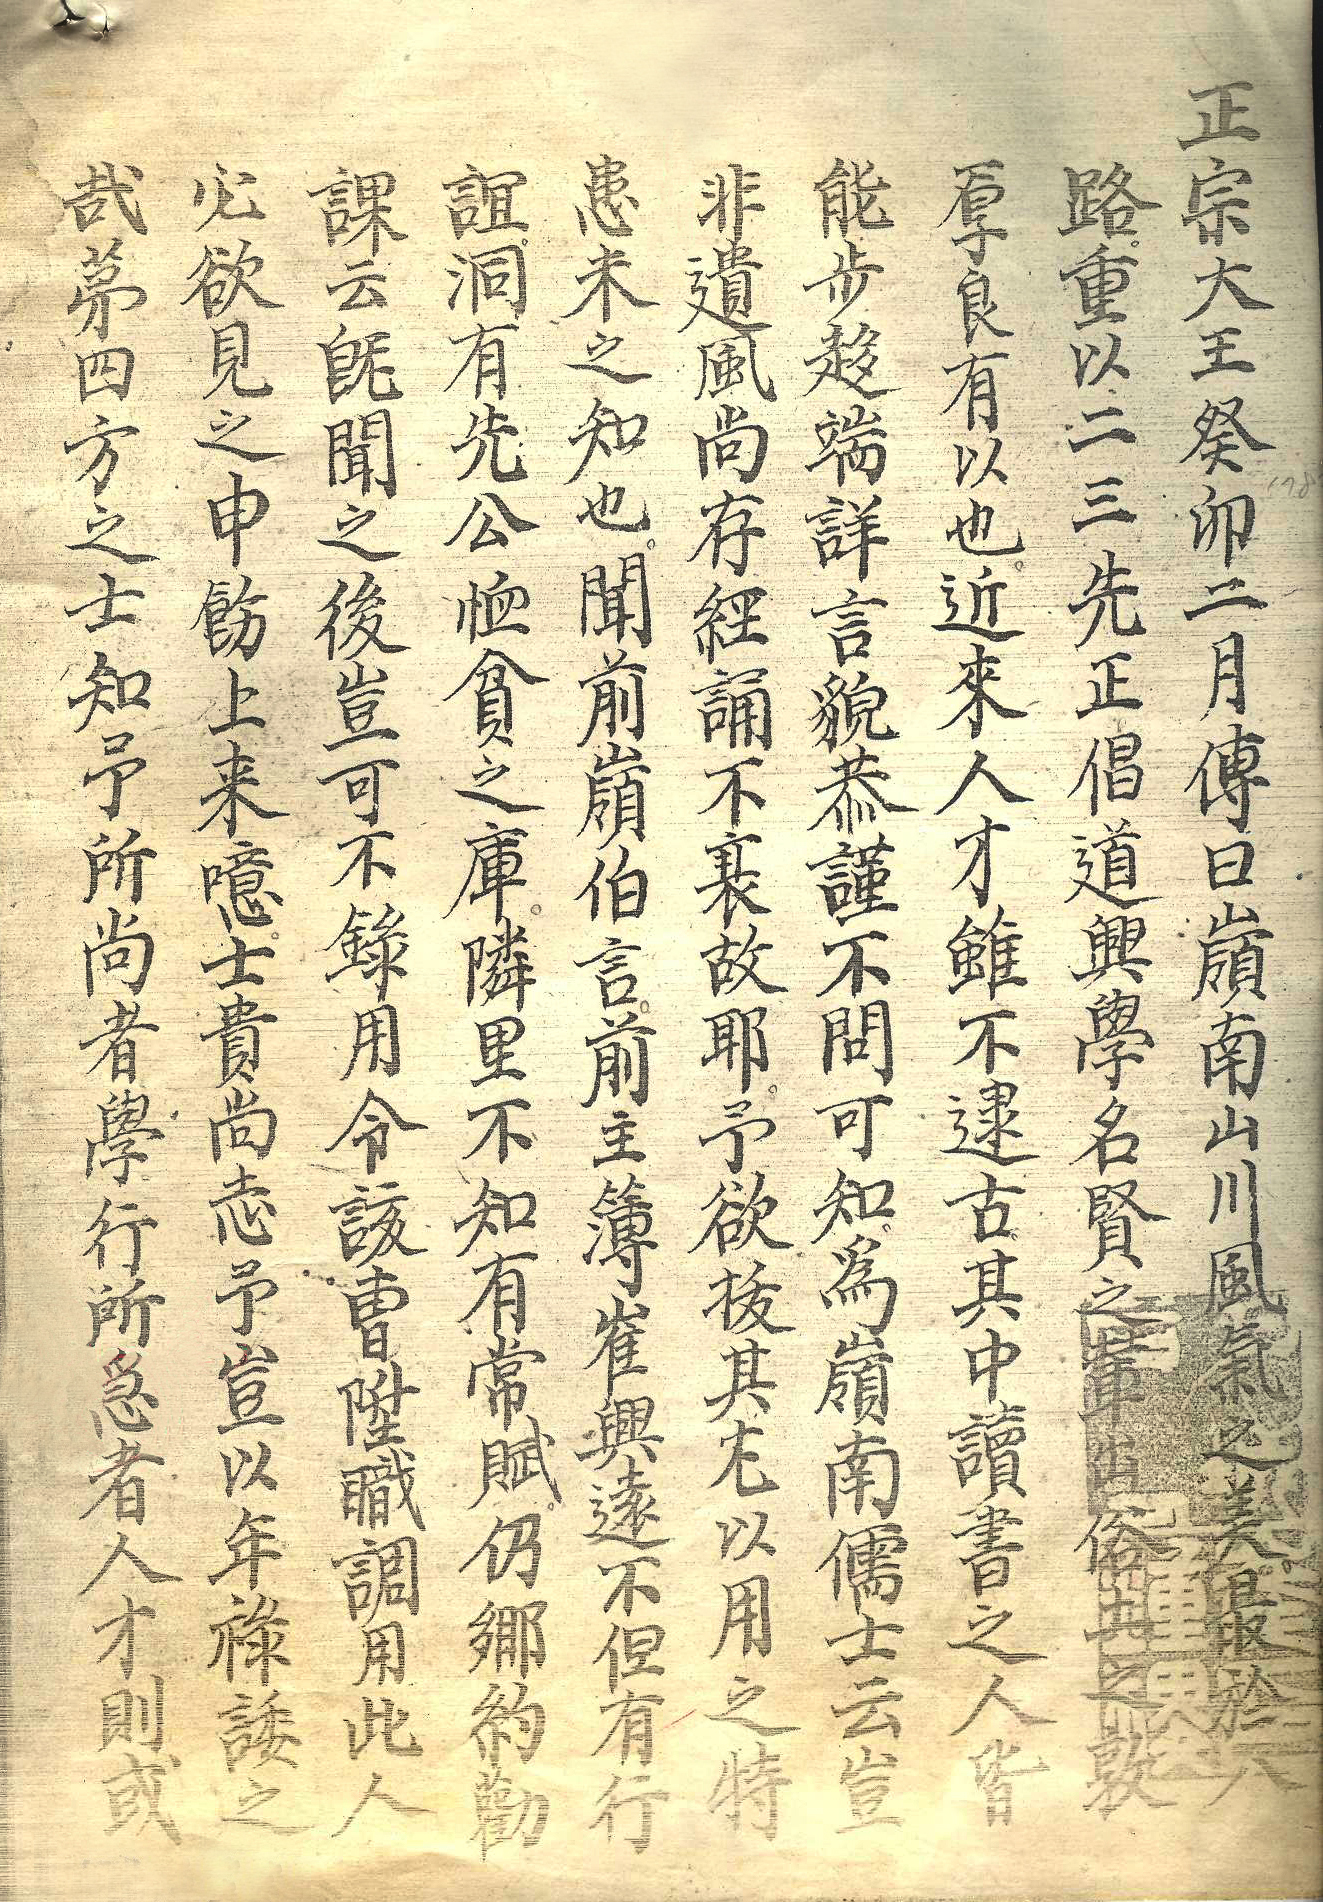 正宗大王癸卯二月傳曰嶺南山川風氣之美最於八
路重以二三先正倡道興學名賢之輩出俗尚之敦
厚良有以也近來人才雖不逮古其中讀書之人皆
能步趍端詳言貌恭謹不問可知為嶺南儒士云豈
非遺風尚存經誦不衰故耶予欲拔其尤以用之特
患未之知也聞前嶺伯言前主簿崔興遠不但有行
誼洞有先公恤貧之庫隣里不知有常賦仍鄉約勸
課云旣聞之後豈可不錄用令該曺陞職調用此人
必欲見之申飭上来噫士貴尚志予豈以年祿諉之
哉苐四方之士知予所尚者學行所急者人才則或